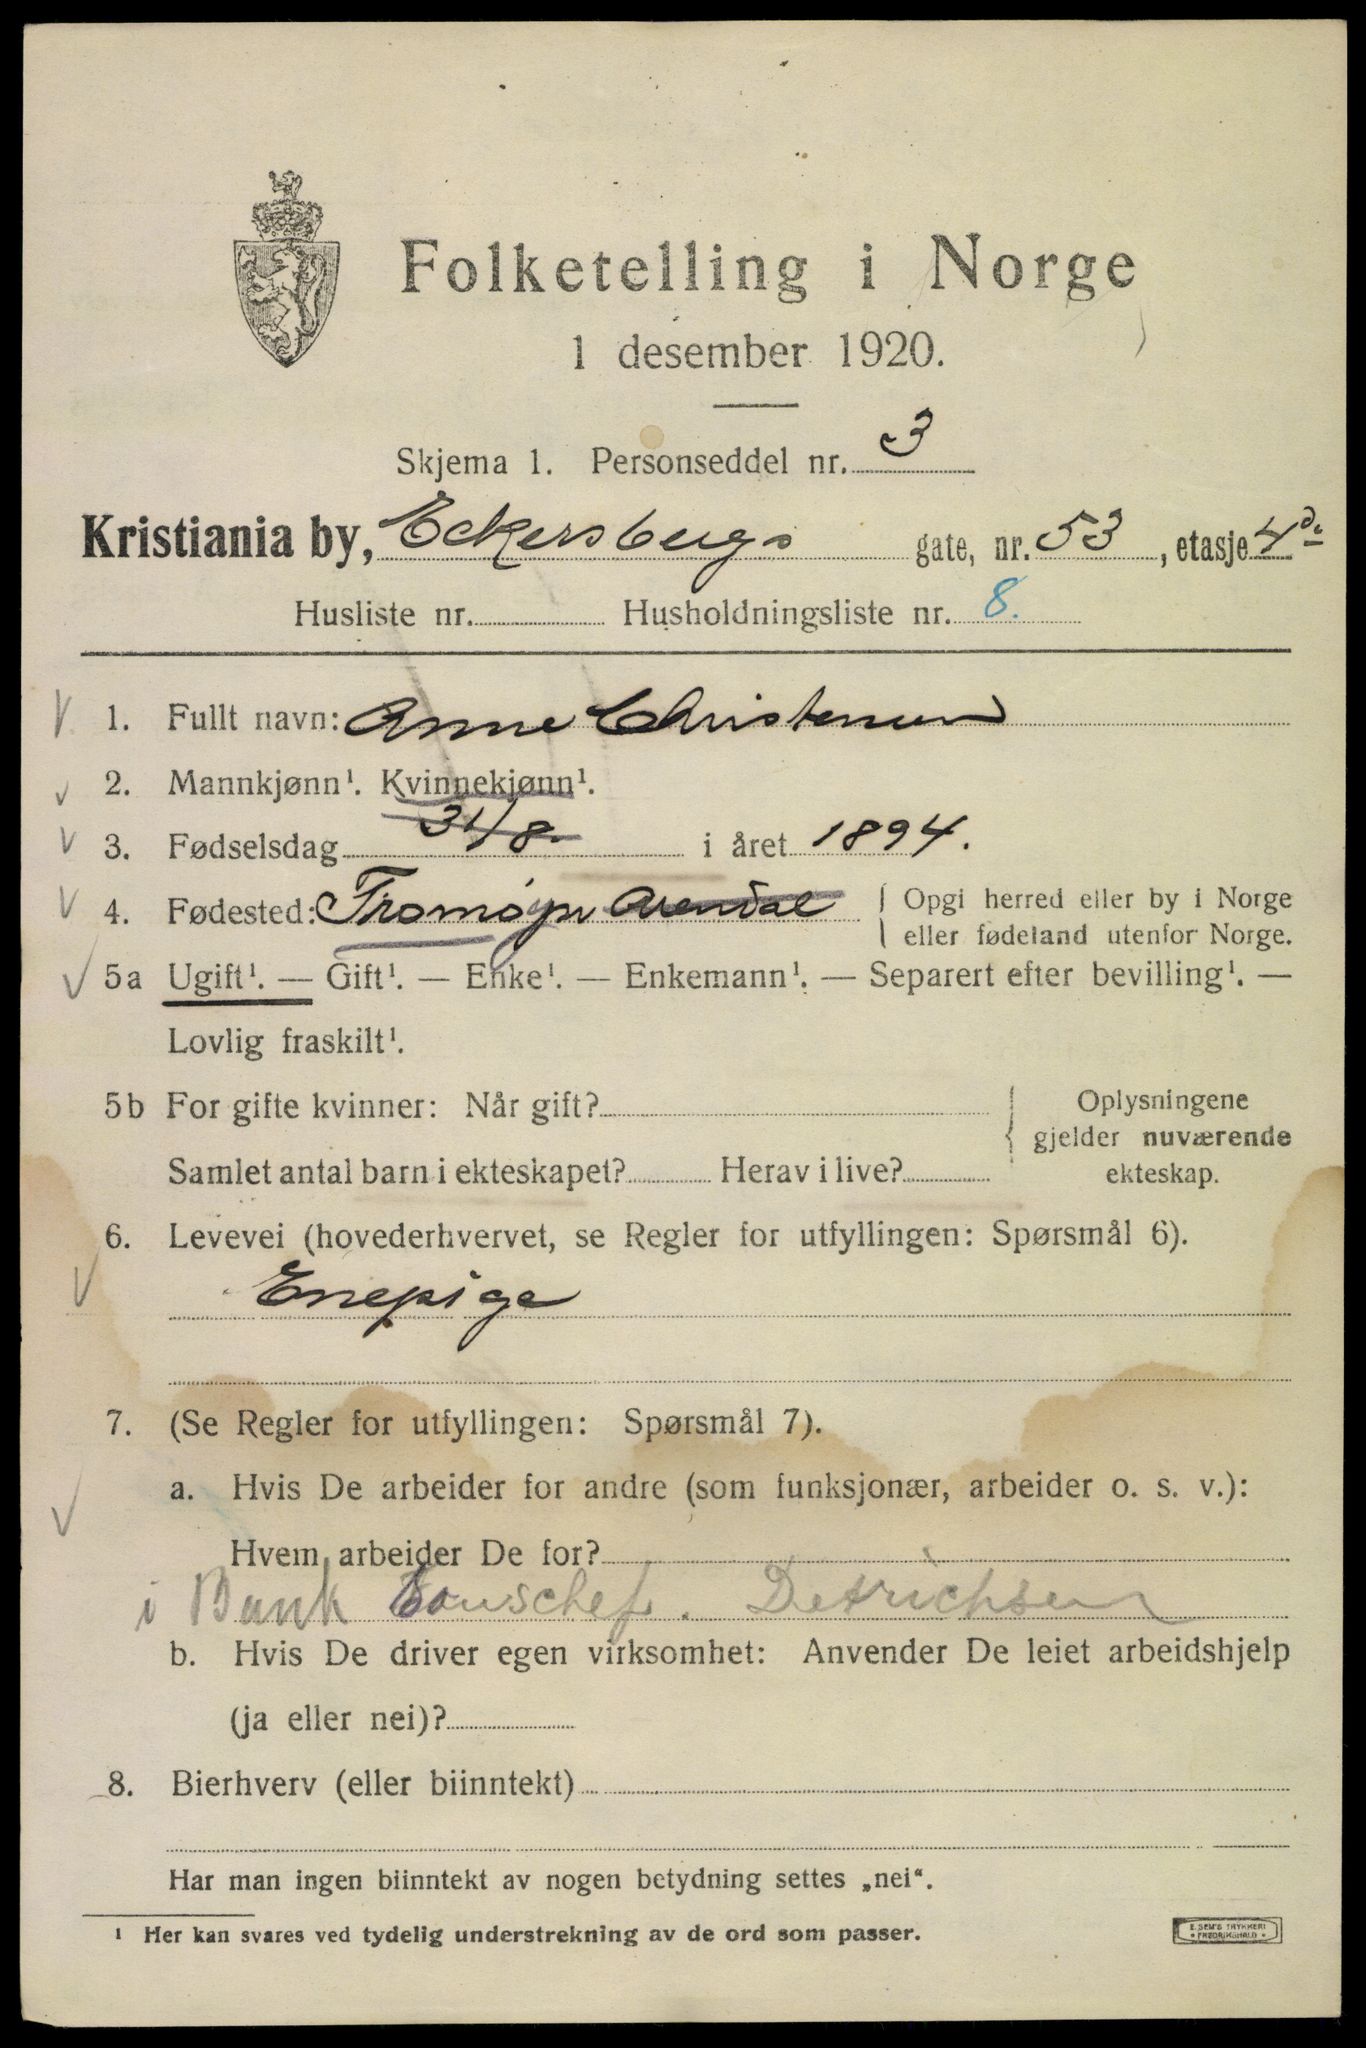 Folketelling i Norge
1 desember 1920.
Skjema 1. Personseddel nr. 3
Kristiania by, Eckersbergs gate, nr. 53, etasje 4de
Husliste nr. Husholdningsliste nr. 8.
1. Fullt navn: Anne Christensen
2. Mannkjønn¹. Kvinnekjønn¹.
3. Fødselsdag 31/8 i året 1894.
4. Fødested: Tromøy pr Arendal { Opgi herred eller by i Norge
eller fødeland utenfor Norge.
5a Ugift¹. — Gift¹. — Enke¹. — Enkemann¹. — Separert efter bevilling¹. —
Lovlig fraskilt¹.
5b For gifte kvinner: Når gift? { Oplysningene
gjelder nuværende
Samlet antal barn i ekteskapet? Herav i live? ekteskap.
6. Levevei (hovederhvervet, se Regler for utfyllingen: Spørsmål 6).
Enepige
7. (Se Regler for utfyllingen: Spørsmål 7).
a. Hvis De arbeider for andre (som funksjonær, arbeider o. s. v.):
Hvem arbeider De for?
i Bank Detrichsen
b. Hvis De driver egen virksomhet: Anvender De leiet arbeidshjelp
(ja eller nei)?
8. Bierhverv (eller biinntekt)
Har man ingen biinntekt av nogen betydning settes „nei“.
¹ Her kan svares ved tydelig understrekning av de ord som passer.
E. SEM'S TRYKKERI
• FREDRIKSHALD •